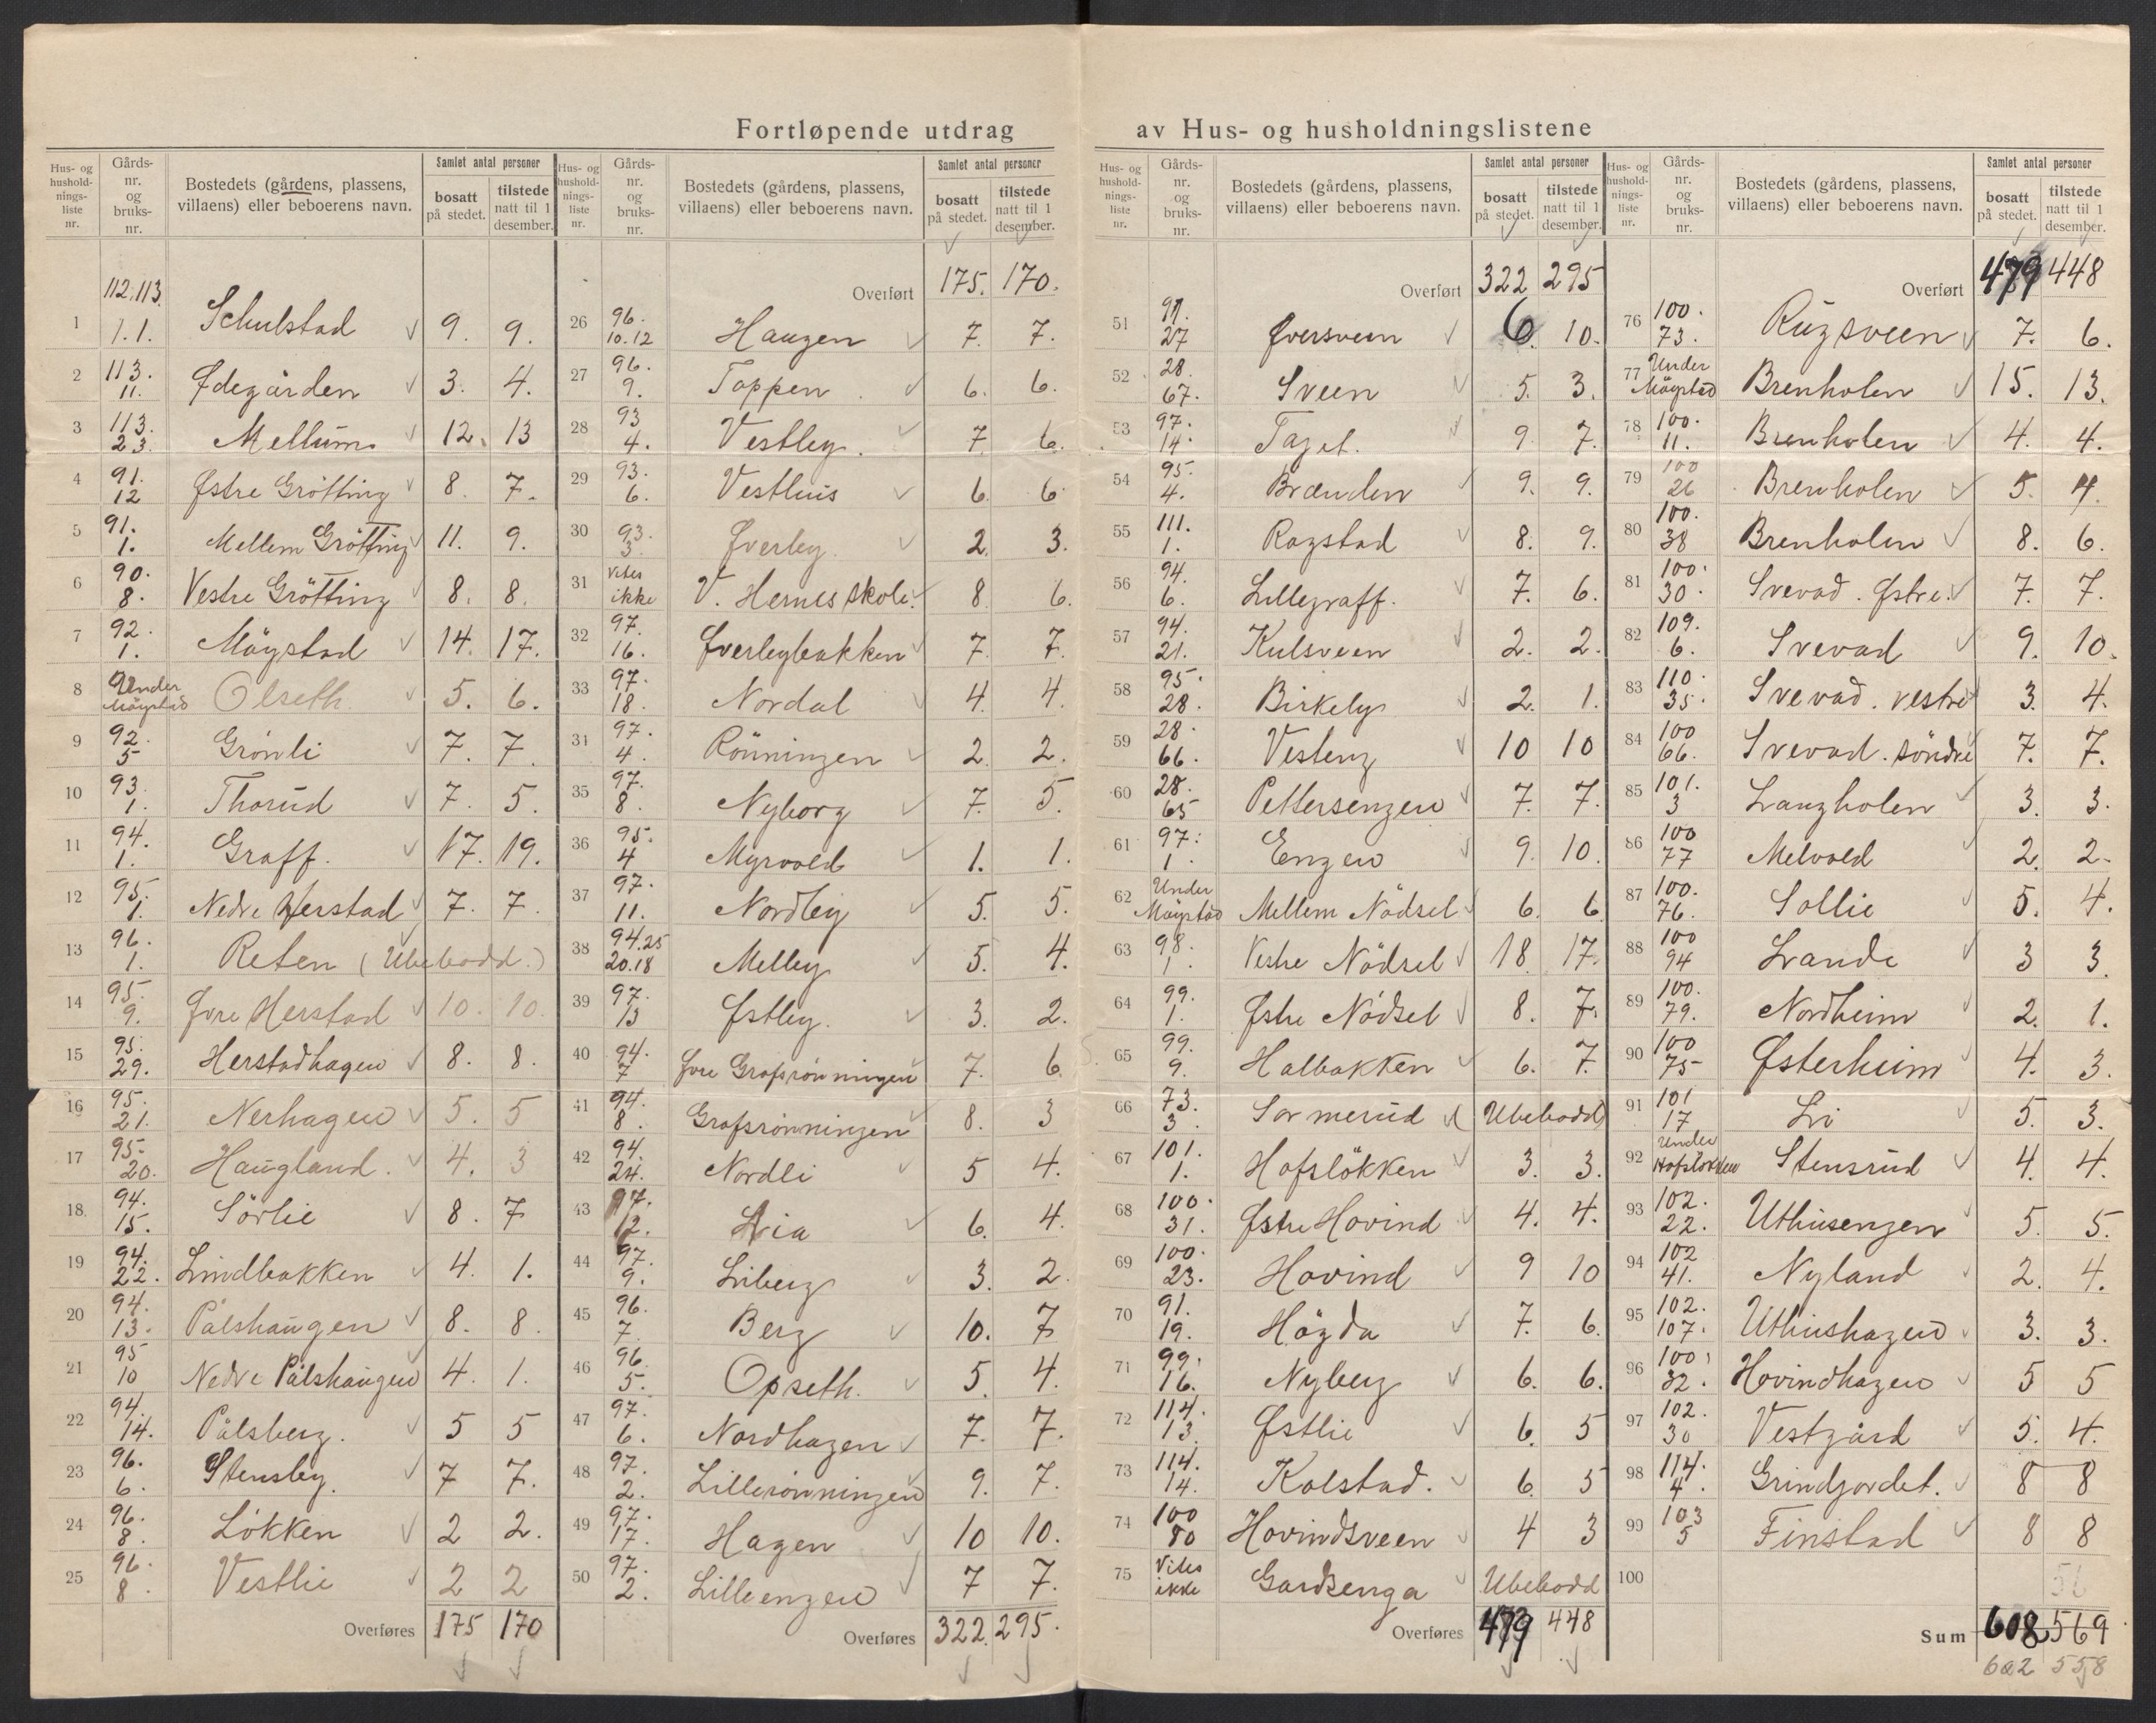 Fortløpende utdrag av Hus- og husholdningslistene
Hus- og husholdningsliste nr. | Gårds-nr. og bruks-nr. | Bostedets (gårdens, plassens, villaens) eller beboerens navn. | Samlet antal personer | bosatt på stedet. | tilstede natt til 1 desember.
1 112.113. 1.1. Schulstad 9. 9.
2 113. 11. Ødegården 3. 4.
3 113. 23. Mellum 12. 13
4 91. 12 Østre Grötting 8. 7.
5 91. 1. Mellem Grötting 11. 9.
6 90. 8. Vestre Grötting 8. 8.
7 92. 1. Mögstad 14. 17.
8 Under Mögstad Olseth. 5. 6.
9 92. 5 Grönli 7. 7.
10 93. 1. Thorud 7. 5.
11 94. 1. Graff. 17. 19.
12 95. 1. Nedre Herstad 7. 7.
13 96. 1. Reten (Ubebodd.)
14 95. 9. Øvre Herstad 10. 10.
15 95. 29. Herstadhagen 8. 8.
16 95. 21. Nerhagen 5. 5
17 95. 20. Haugland. 4. 3
18. 94. 15. Sörlie 8. 7
19 94. 22. Lindbakken 4. 1.
20 94. 13. Pålshaugen 8. 8.
21 95 10 Nedre Pålshaugen 4. 1.
22 94. 14. Pålsberg. 5 5
23 96. 6. Stensby. 7 7.
24 96. 8. Lökken 2 2.
25 96. 8. Vestlie 2 2
Overføres 175 170
Overført 175. 170.
26 96. 10.12 Haugen 7. 7.
27 96. 9. Toppen 6. 6.
28 93 4. Vestby. 7 6.
29 93. 6. Vesthus 6. 6
30 93. 3. Øverby. 2. 3.
31 Vites ikke V. Hernes skole. 8 6.
32 97. 16. Øverbybakken 7. 7.
33 97. 18. Nordal 4. 4.
34 97. 4. Rönningen 2. 2.
35 97. 8. Nyborg 7. 5.
36 95. 4 Myrvold 1. 1.
37 97. 11. Nordby 5. 5.
38 94.25 20.18 Melby 5. 4.
39 97. 13 Østby. 3. 2.
40 94. 7 Øvre Grafsrönningen 7. 6.
41 94. 8. Grafsrönningen 8. 3
42 94. 24. Nordli 5 4.
43 97. 12. Lia 6. 4.
44 97. 9. Liberg 3. 2.
45 96. 7. Berg 10. 7
46 96. 5. Opseth. 5. 4.
47 97. 6. Nordhagen 7. 7.
48 97. 2. Lillerönningen 9. 7.
49 97. 17. Hagen 10 10.
50 97. 2. Lilleengen 7 7.
Overføres 322. 295.
Overført 322 295
51 91. 27 Øversveen 6. 10.
52 28. 67. Sveen 5. 3.
53 97. 14. Taget. 9. 7.
54 95. 4. Brænden 9. 9.
55 111. 1. Rogstad 8. 9.
56 94. 6. Lillegraff. 7. 6.
57 94. 21. Kulsveen 2. 2.
58 95. 28. Birkely 2. 1.
59 28. 66. Vesteng 10 10
60 28. 65 Pettersengen 7. 7.
61 97. 1. Engen 9. 10.
62 Under Mögstad Mellem Nödsel 6. 6
63 98. 1. Vestre Nödsel 18 17.
64 99. 1. Østre Nödsel 8. 7.
65 99. 9. Halbakken 6. 7.
66 73. 3. Sormerud Ubebodd
67 101. 1. Hofslökken 3. 3.
68 100. 31. Østre Hovind 4. 4.
69 100. 23. Hovind 9 10
70 91. 19. Högda 7. 6.
71 99. 16. Nyberg 6. 6.
72 114. 13. Østlie 6. 5
73 114. 14. Kolstad. 6. 5
74 100 80 Hovindsveen 4 3
75 Vites ikke Gardsenga Ubebodd
Overføres 479 448
Overført 479 448
76 100. 73. Rugsveen 7. 6.
77 Under Mögstad Brenholen 15. 13.
78 100. 11. Brenholen 4. 4.
79 100 26 Brenholen 5. 4.
80 100. 38 Brenholen 8. 6.
81 100. 30. Svevad. Østre. 7. 7.
82 109. 6. Svevad 9. 10.
83 110. 35. Svevad. vestre 3. 4.
84 100 66. Svevad. söndre 7. 7.
85 101. 3 Langholen 3. 3.
86 100 77 Melvold 2. 2.
87 100. 76. Sollie 5. 4.
88 100 94 Lande 3 3.
89 100. 79. Nordheim 2. 1.
90 100 75 Østerheim 4. 3.
91 101 17 Li 5. 3.
92 Under Hofslökken Stensrud 4. 4.
93 102. 22. Uthusengen 5. 5.
94 102 41. Nyland 2. 4.
95 102. 107. Uthushagen 3. 3.
96 100. 32. Hovindhagen 5 5
97 102. 30 Vestgård 5. 4.
98 114. 4. Grindjordet. 8 8
99 103 5 Finstad 8 8
100
Sum 608 569
602 558